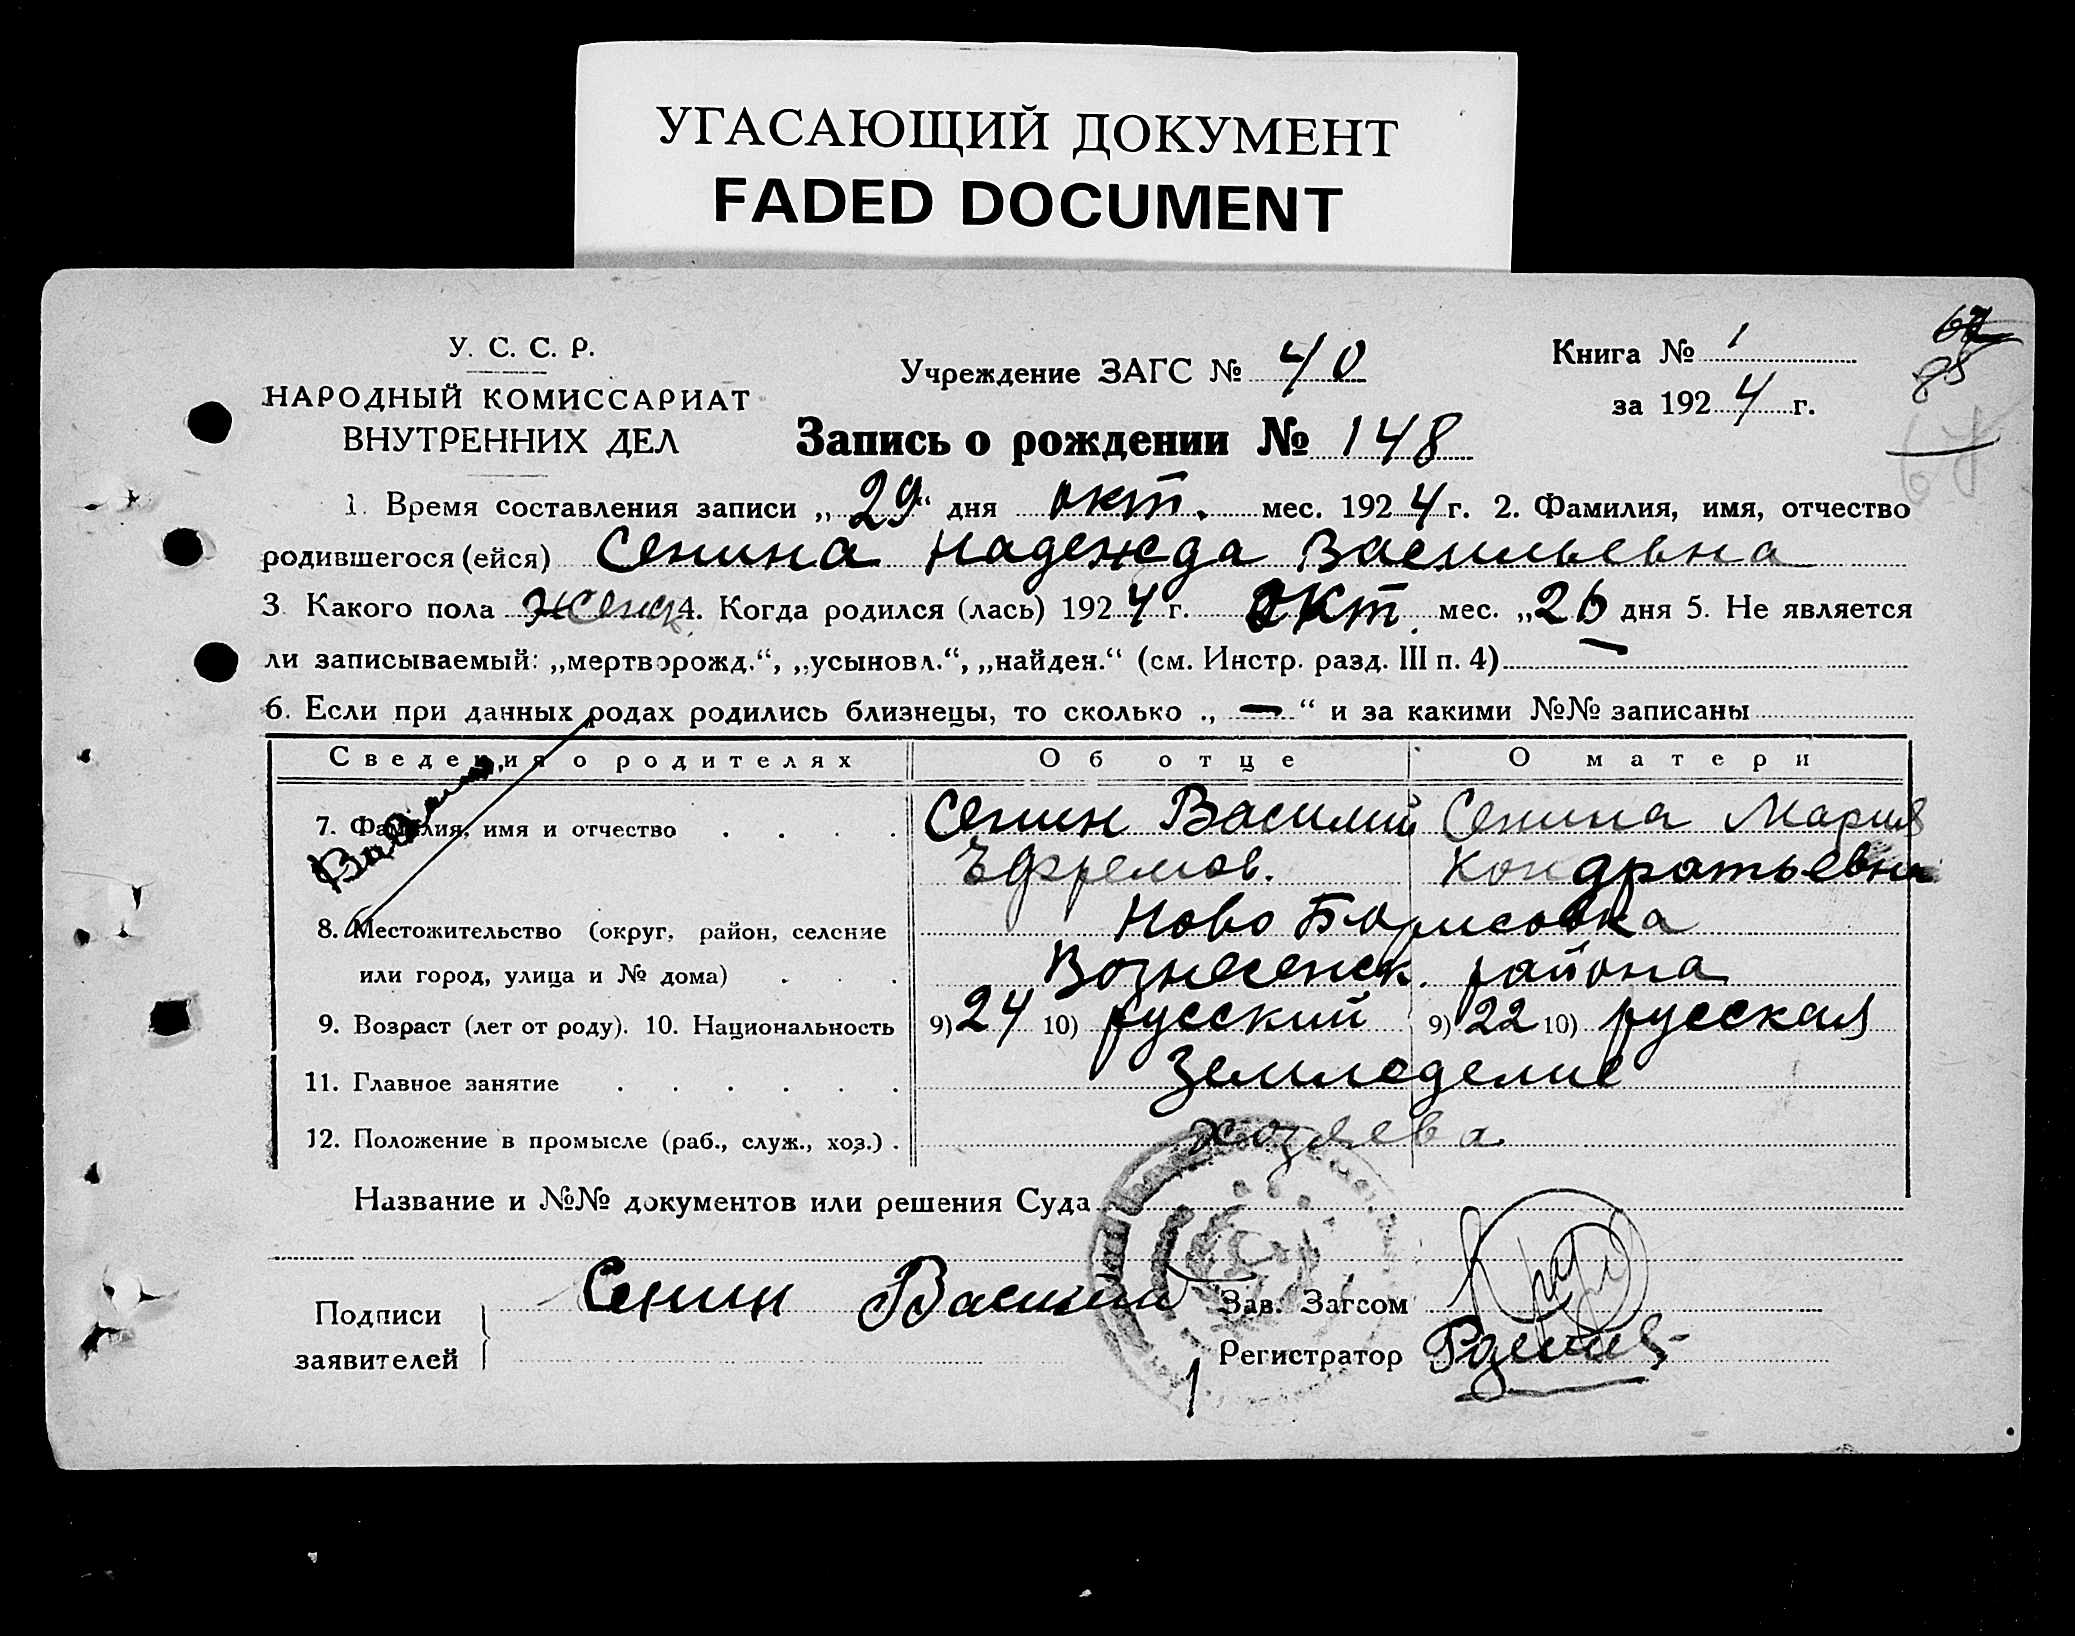 УГАСАЮЩИЙ ДОКУМЕНТ
FADED DOCUMENT
У. С. С. Р.
НАРОДНЫЙ КОМИССАРИАТ
ВНУТРЕННИХ ДЕЛ
Учреждение ЗАГС № 40
Книга № 1
за 1924 г.
85
67
Запись о рождении № 148
1. Время составления записи „29“ дня окт. мес. 1924 г. 2. Фамилия, имя, отчество
родившегося (ейся) Сенина Надежда Васильевна
3. Какого пола женск. 4. Когда родился (лась) 1924 г. окт. мес. „26 дня 5. Не является
ли записываемый: „мертворожд.“, „усыновл.“, „найден.“ (см. Инстр. разд. III п. 4) —
6. Если при данных родах родились близнецы, то сколько „—“ и за какими №№ записаны
Сведения о родителях Об отце О матери
7. Фамилия, имя и отчество . . . . Сенин Василий Сенина Мария
Ефремов. Кондратьевна
8. Местожительство (округ, район, селение Ново Борисовка
или город, улица и № дома) . . . Вознесенск. района
9. Возраст (лет от роду). 10. Национальность 9) 24 10) русский 9) 22 10) русская
11. Главное занятие . . . . . . Земледелие
12. Положение в промысле (раб., служ., хоз.) . хозяева
Название и №№ документов или решения Суда
Подписи заявителей Сенин Василий
Зав. Загсом
Регистратор